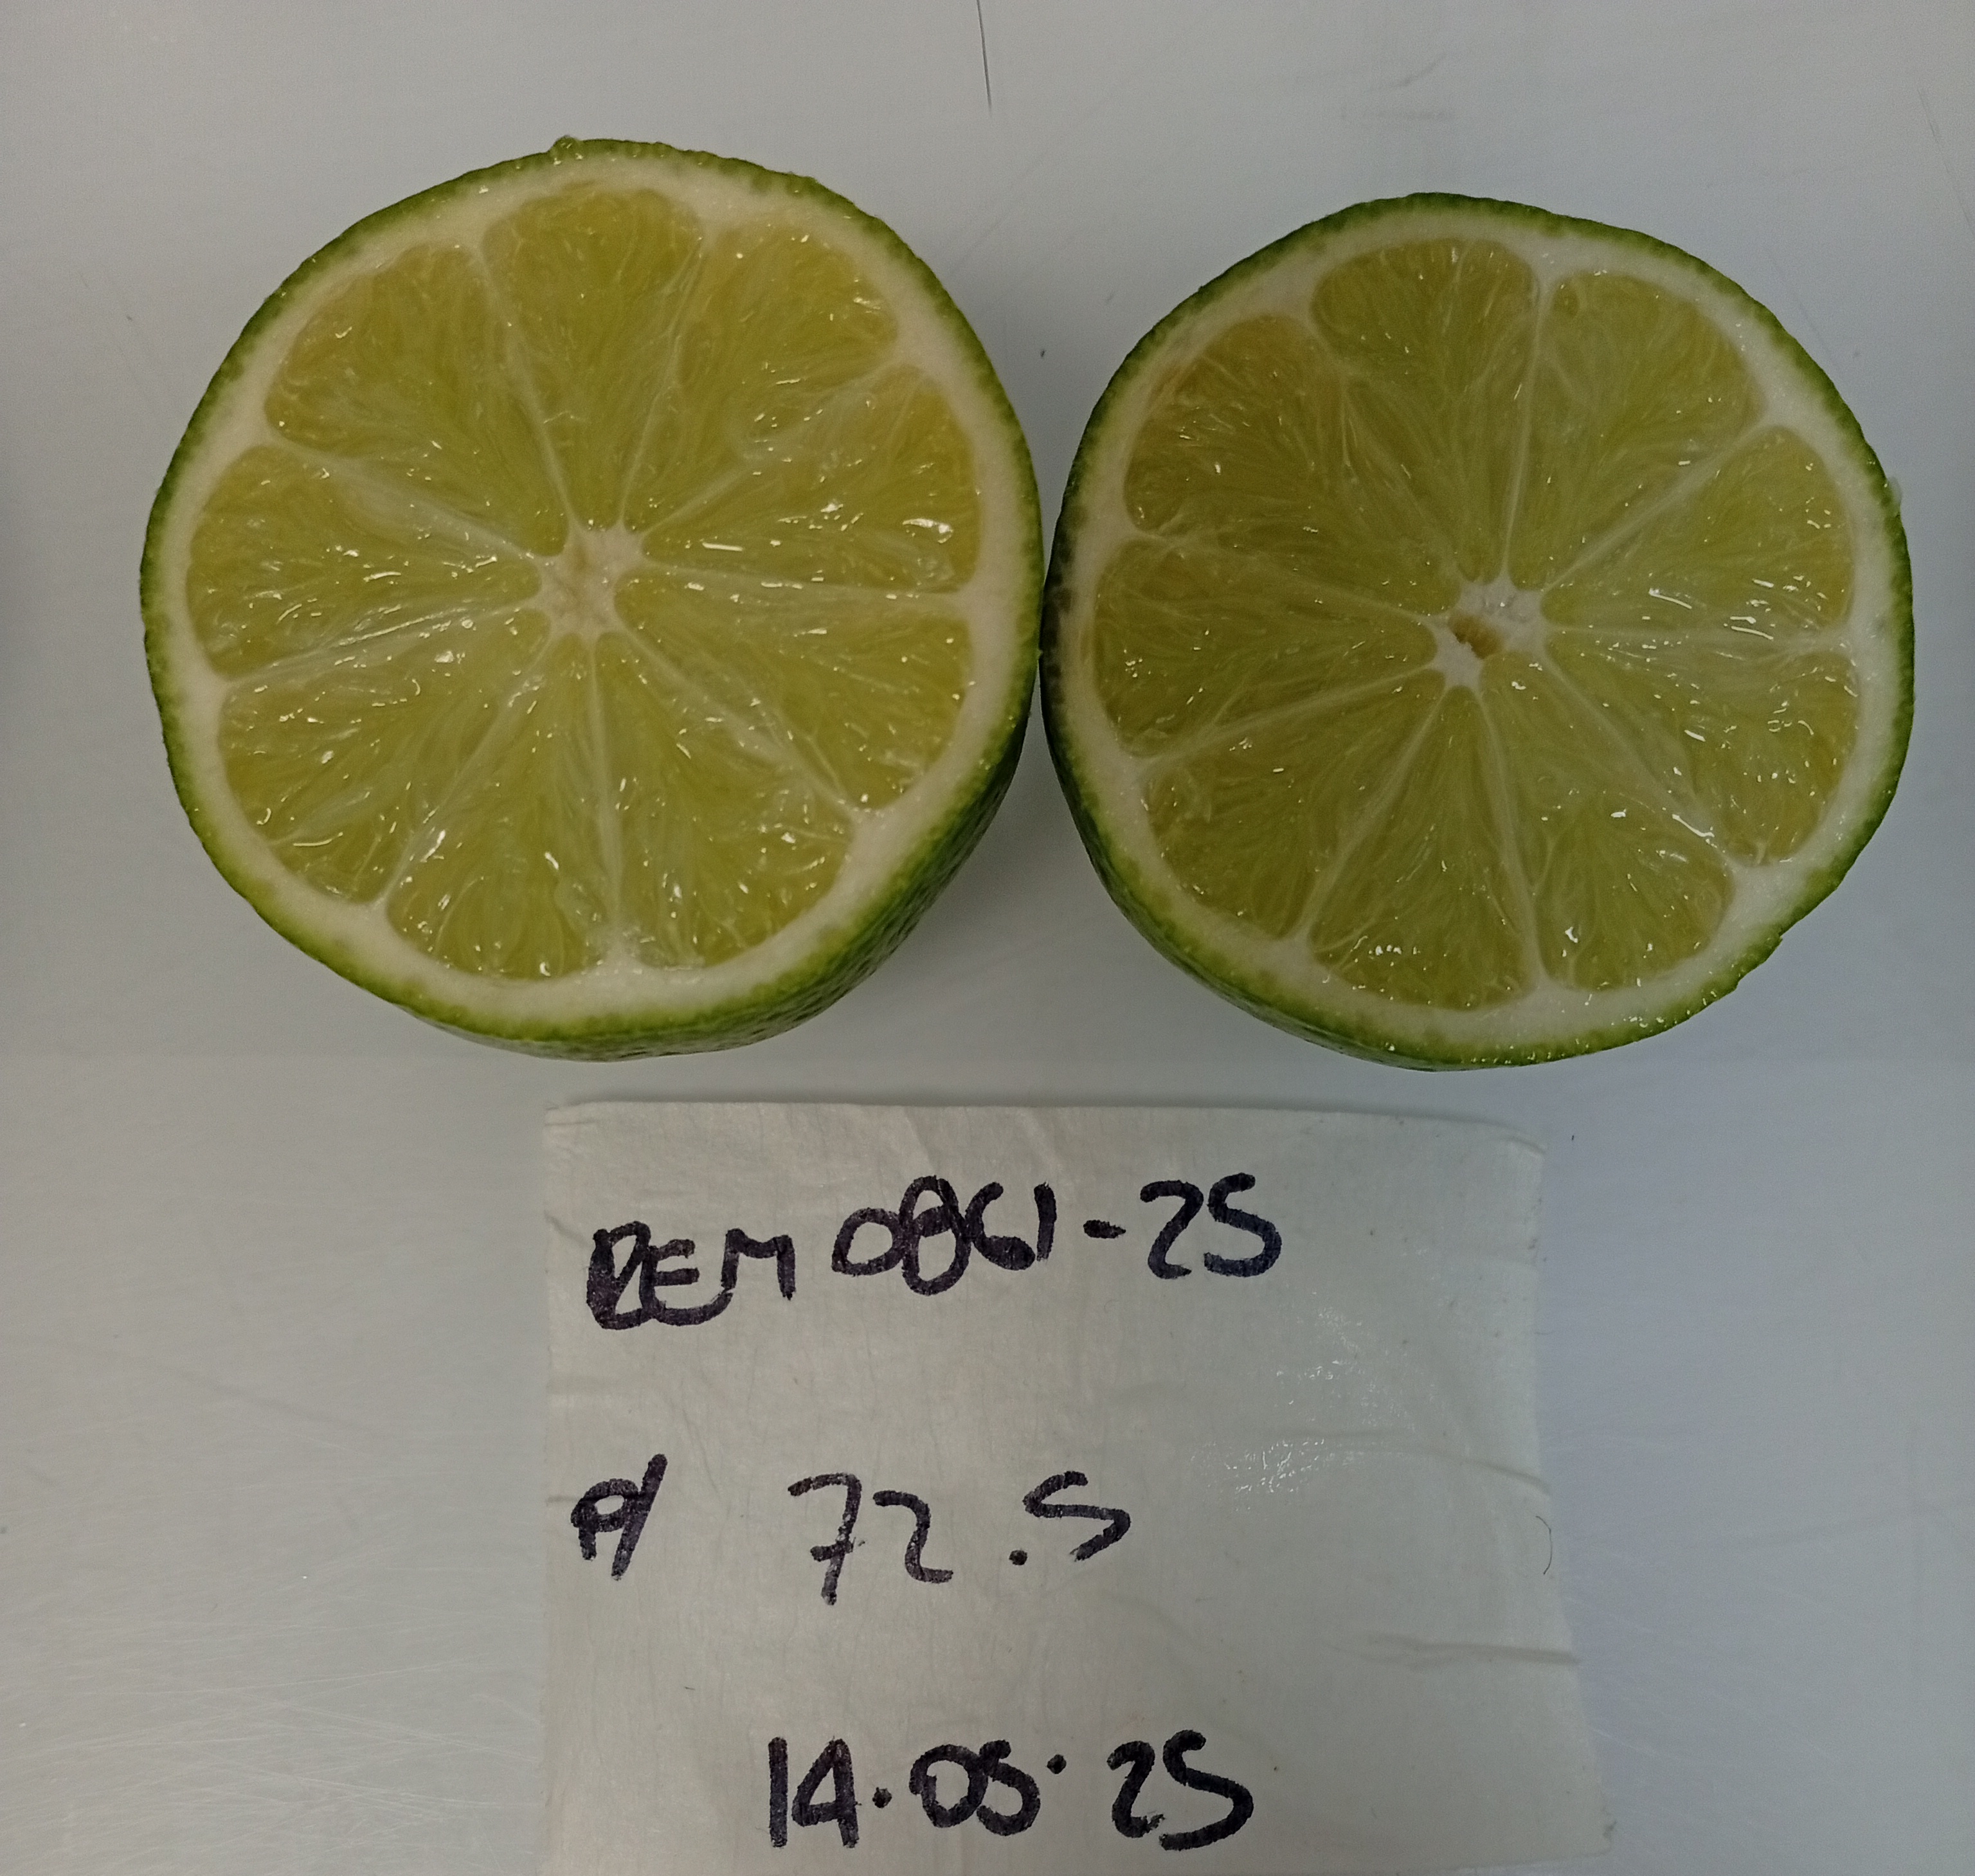 REM 0861-25
P/ 72.5
14.05.25